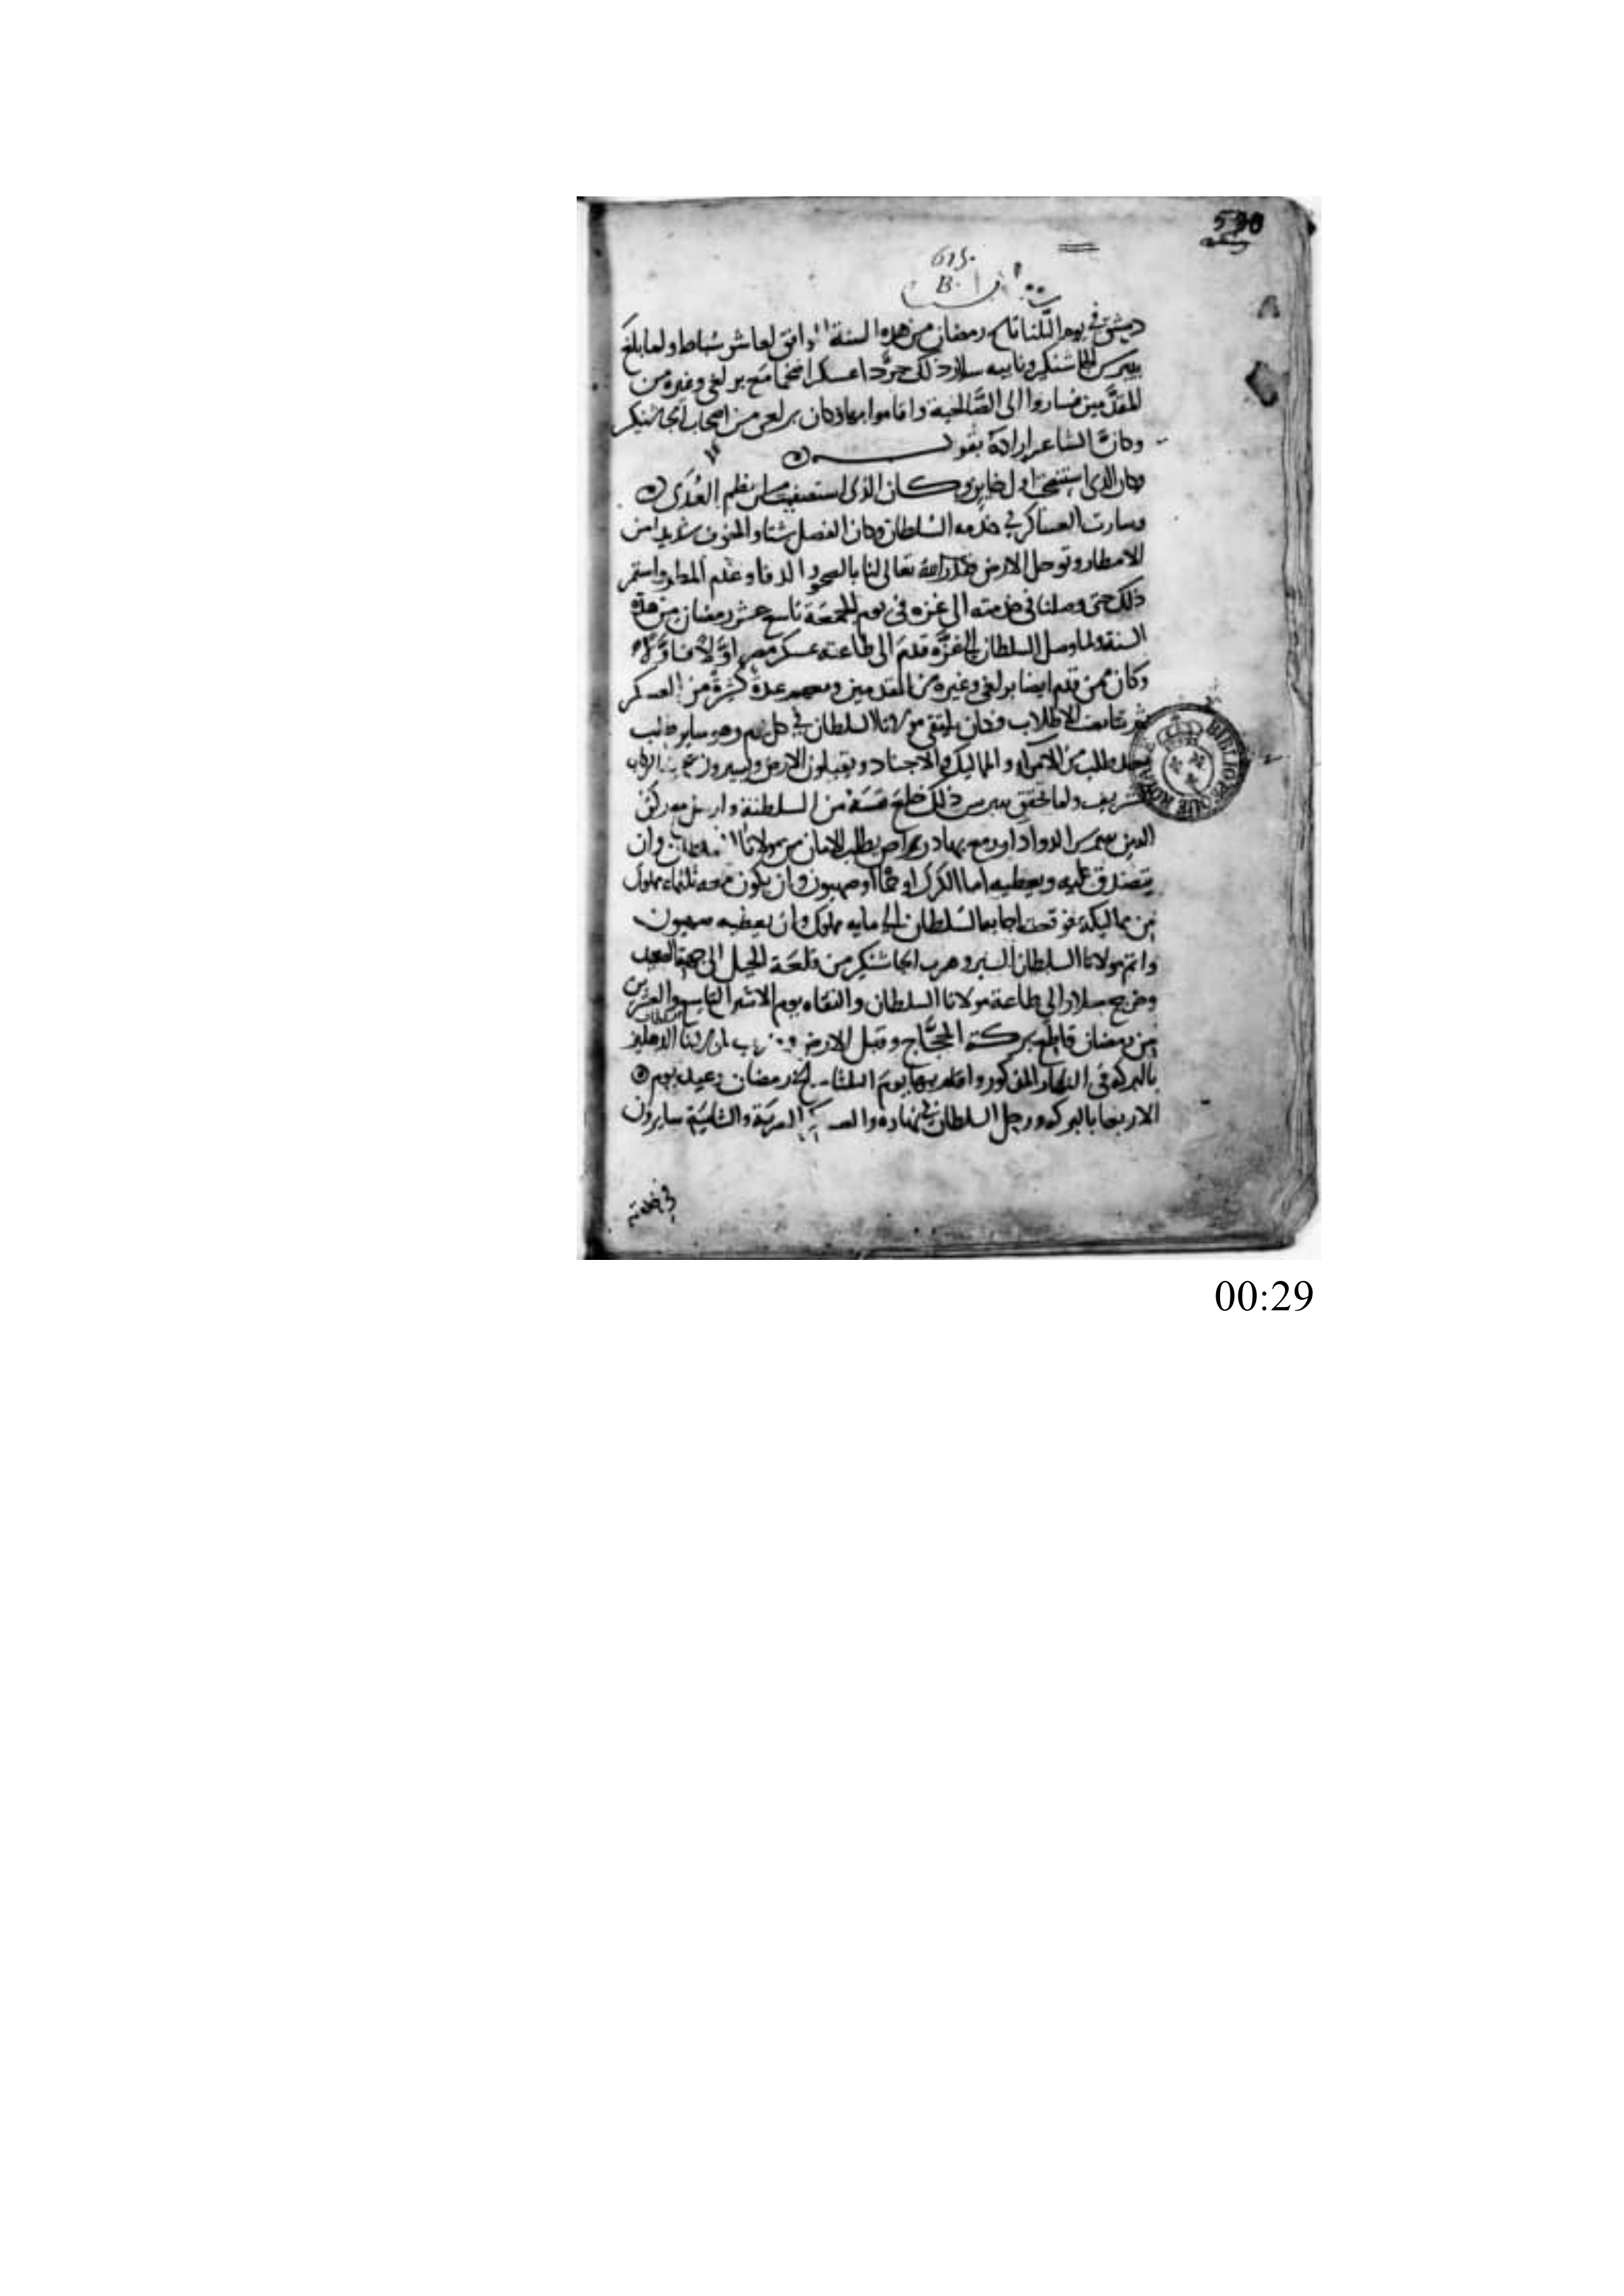 590
615.
B.
دمشق في يوم الثلثا تاسع رمضان من هذه السنة الموافق لعاشر شباط ولما بلغ
بيبرس الجاشنكير ونايبه سلار ذلك جردا عسكرا ضخما مع برلغي وغيره من
المقدمين فساروا الى الصالحية واقاموا بها وكان برلغي من اصحاب الجاشنكير
وكان الشاعر اراده بقوله
وكان الذي استنصحت اول خاين وكان الذي استصفيت من اعظم العدى
وسارت العساكر في خدمه السلطان وكان الفصل شتا والخوف شديد من
الامطار وتوحل الارض فقدر الله تعالى لنا بالصحو الدفا وعدم المطر واستمر
ذلك حتى وصلنا في خدمته الى غزه في يوم الجمعة تاسع عشر رمضان من هذه
السنة ولما وصل السلطان الى غزة قدم الى طاعته عسكر مصر اولا فاولا
وكان ممن قدم ايضا برلغي وغيره من المقدمين ومعهم عدة كثيرة من العسكر
ثم تتابعت الاطلاب فكان يلتقي مولانا السلطان في كل يوم وهو ساير طلب
بعد طلب من الامرآء والمماليك والاجناد ويقبلون الارض ويسيرون صحبة الركاب
الشريف ولما تحقق بيبرس ذلك خلع نفسه من السلطنة وارسل مع ركن
الدين بيبرس الدوادار ومع بهادراص يطلب الامان من مولانا السلطان وان
يتصدق عليه ويعطيه اما الكرك او حماة او صهيون وان يكون معه ثلثماية مملوك
من مماليكه فوقعت اجابة السلطان الى مايه مملوك وان يعطيه صهيون
واتم مولانا السلطان السير وهرب الجاشنكير من قلعة الجبل الى جهة الصعيد
وخرج سلار الى طاعة مولانا السلطان والتقاه يوم الاثنين التاسع والعشرين
من رمضان قاطع بركة الحجاج وقبل الارض وضرب لمولانا السلطان الدهليز
بالبركه في النهار المذكور واقام بها يوم الثلثا سلخ رمضان وعيد يوم
الاربعا بالبركه ورحل السلطان في نهاره والعساكر المصرية والشامية سايرون
في خدمته
BIBLIOTHEQUE ROYALE
00:29